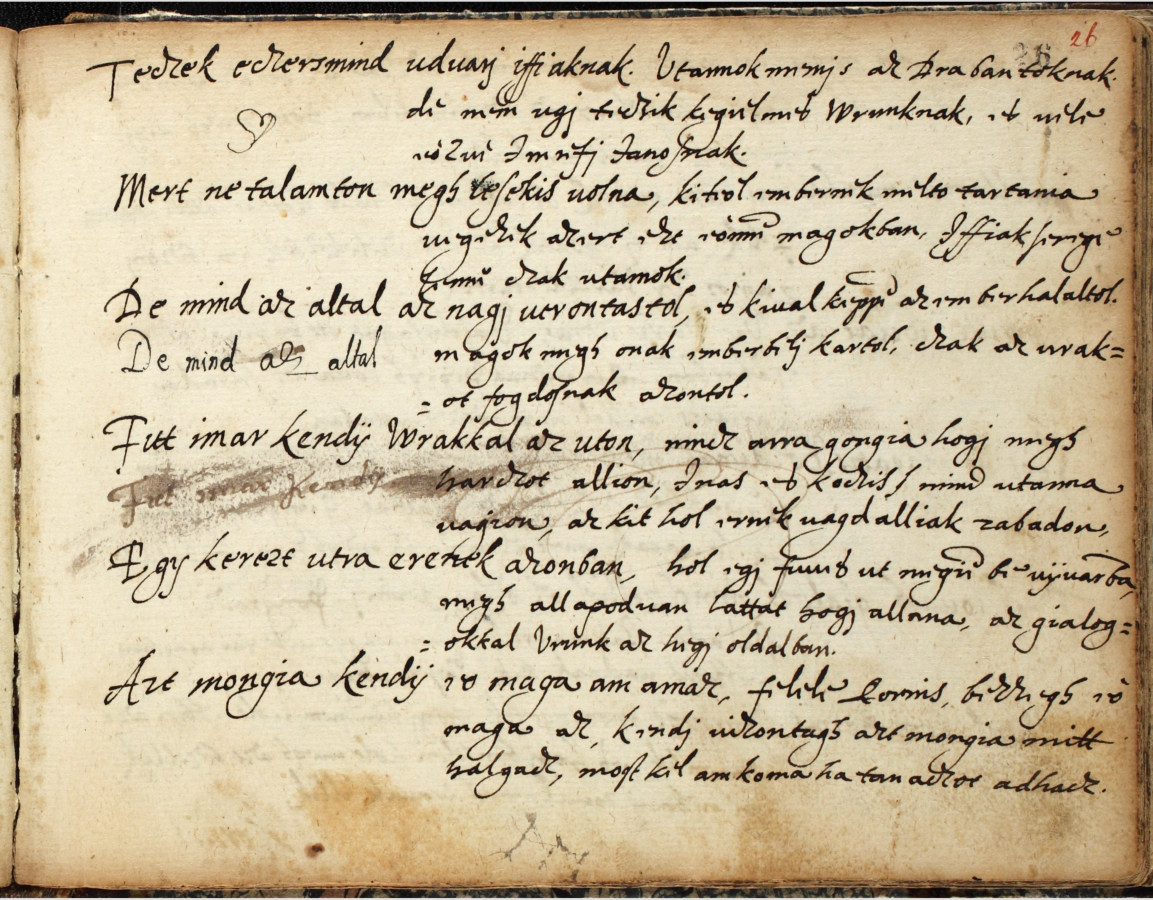 26
Tedzek edzersmind uduarj iffiaknak. Utannok mennijs az Drabantoknak.
de nem ugj tedzik kegielmes Wrunknak, es uele
eözue Imrefj Janosnak.
Mert ne talamton megh lesekis uolna, kiteöl embernek melto tartania
uegezek azert ezt eönnen magokban, Iffiak serege
lenne czak utanok.
De mind az altal az nagj uerontastol, es kiualkeppen az ember halaltol.
De mind az altal
magok megh onak emberbelj kartol, czak az urak=
= ot fogdosnak azontol.
Fut imar kendÿ Wrakkal az uton, nincz arra gongia hogj megh
Fut imar kendÿ
harczot allion, Inas es koczis mind utanna
uagion, az kit hol ernek uagdalliak zabadon,
Egy kerezt utra erenek azonban, hol egj fuues ut megien be uÿuarba,
megh allapoduan lattat hogj allana, az gialog=
= okkal Urunk az hegj oldalban.
Azt mongia kendÿ eö maga am amaz, felele Cornis, bezzegh eö
maga az, kendj uizontagh azt mongia mitt
halgacz, most kel am koma ha tanaczot adhacz.